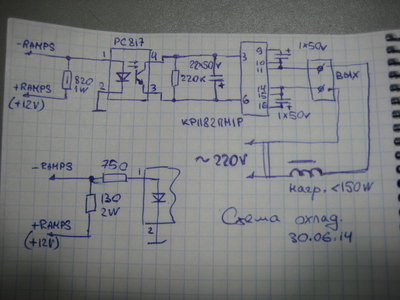 PC817
-RAMPS
1
4
22x50V
9
1x50V
3
10
11
820
1W
220K
ВЫХ
+RAMPS
2
3
6
15
(+12V)
КР1182ПМ1Р
1x50V
~220V
-RAMPS
750
1
нагр. <150W
130
2W
+RAMPS
(+12V)
2
Схема охлад.
30.06.14